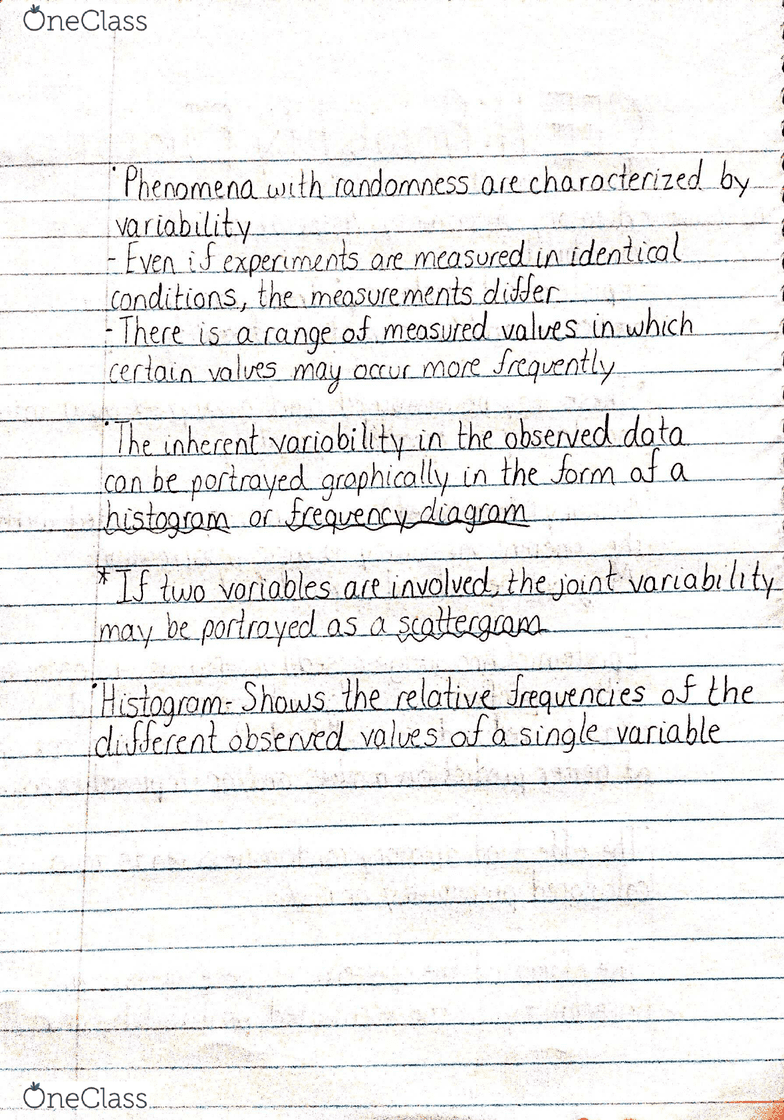 OneClass
·Phenomena with randomness are characterized by
variability
- Even if experiments are measured in identical
conditions, the measurements differ
- There is a range of measured values in which
certain values may occur more frequently
·The inherent variability in the observed data
can be portrayed graphically in the form of a
histogram or frequency diagram
* If two variables are involved, the joint variability
may be portrayed as a scattergram
·Histogram- Shows the relative frequencies of the
different observed values of a single variable
OneClass